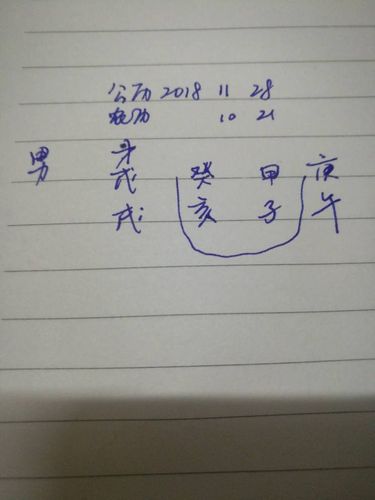 公历 2018 11 28
农历 10 21
才
男 戊 癸 甲 庚
戌 亥 子 午